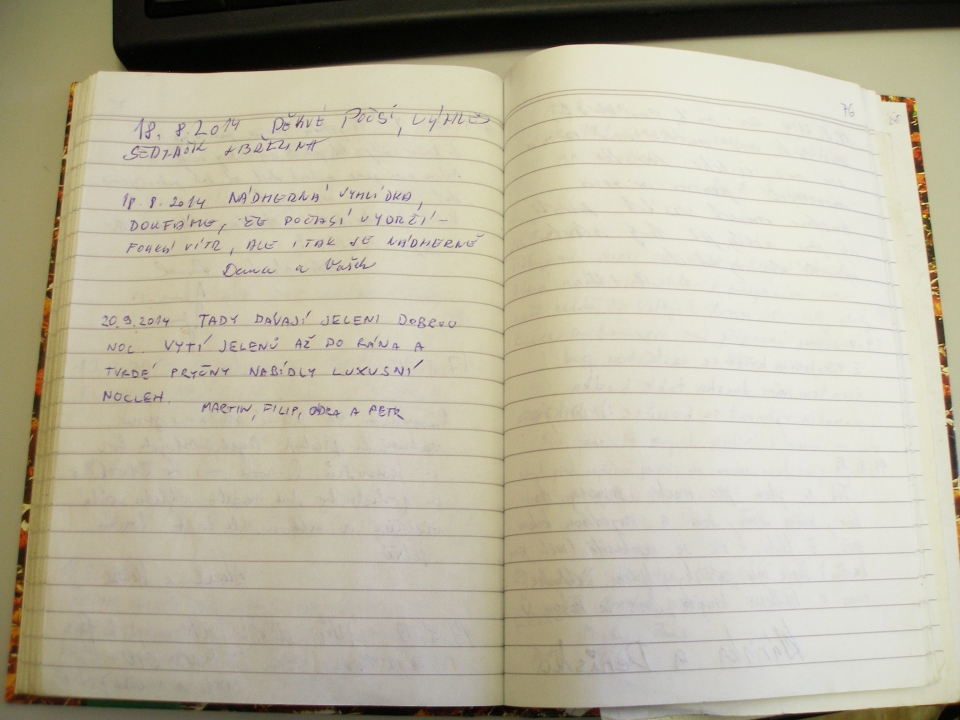 18. 8. 2014 PĚKNÉ POČSÍ, VÝHLED
SEDLÁČK + BŘEZINA
18. 8. 2014 NÁDHERNÁ VYHLÍDKA,
DOUFÁME, ŽE POČASÍ VYDRŽÍ -
FOUKÁ VÍTR, ALE I TAK JE NÁDHERNĚ
Dana a Vašek
20. 9. 2014 TADY DÁVAJÍ JELENI DOBROU
NOC. VYTÍ JELENŮ AŽ DO RÁNA A
TVRDÉ PRYČNY NABÍDLY LUXUSNÍ
NOCLEH.
MARTIN, FILIP, ONDRA A PETR
76